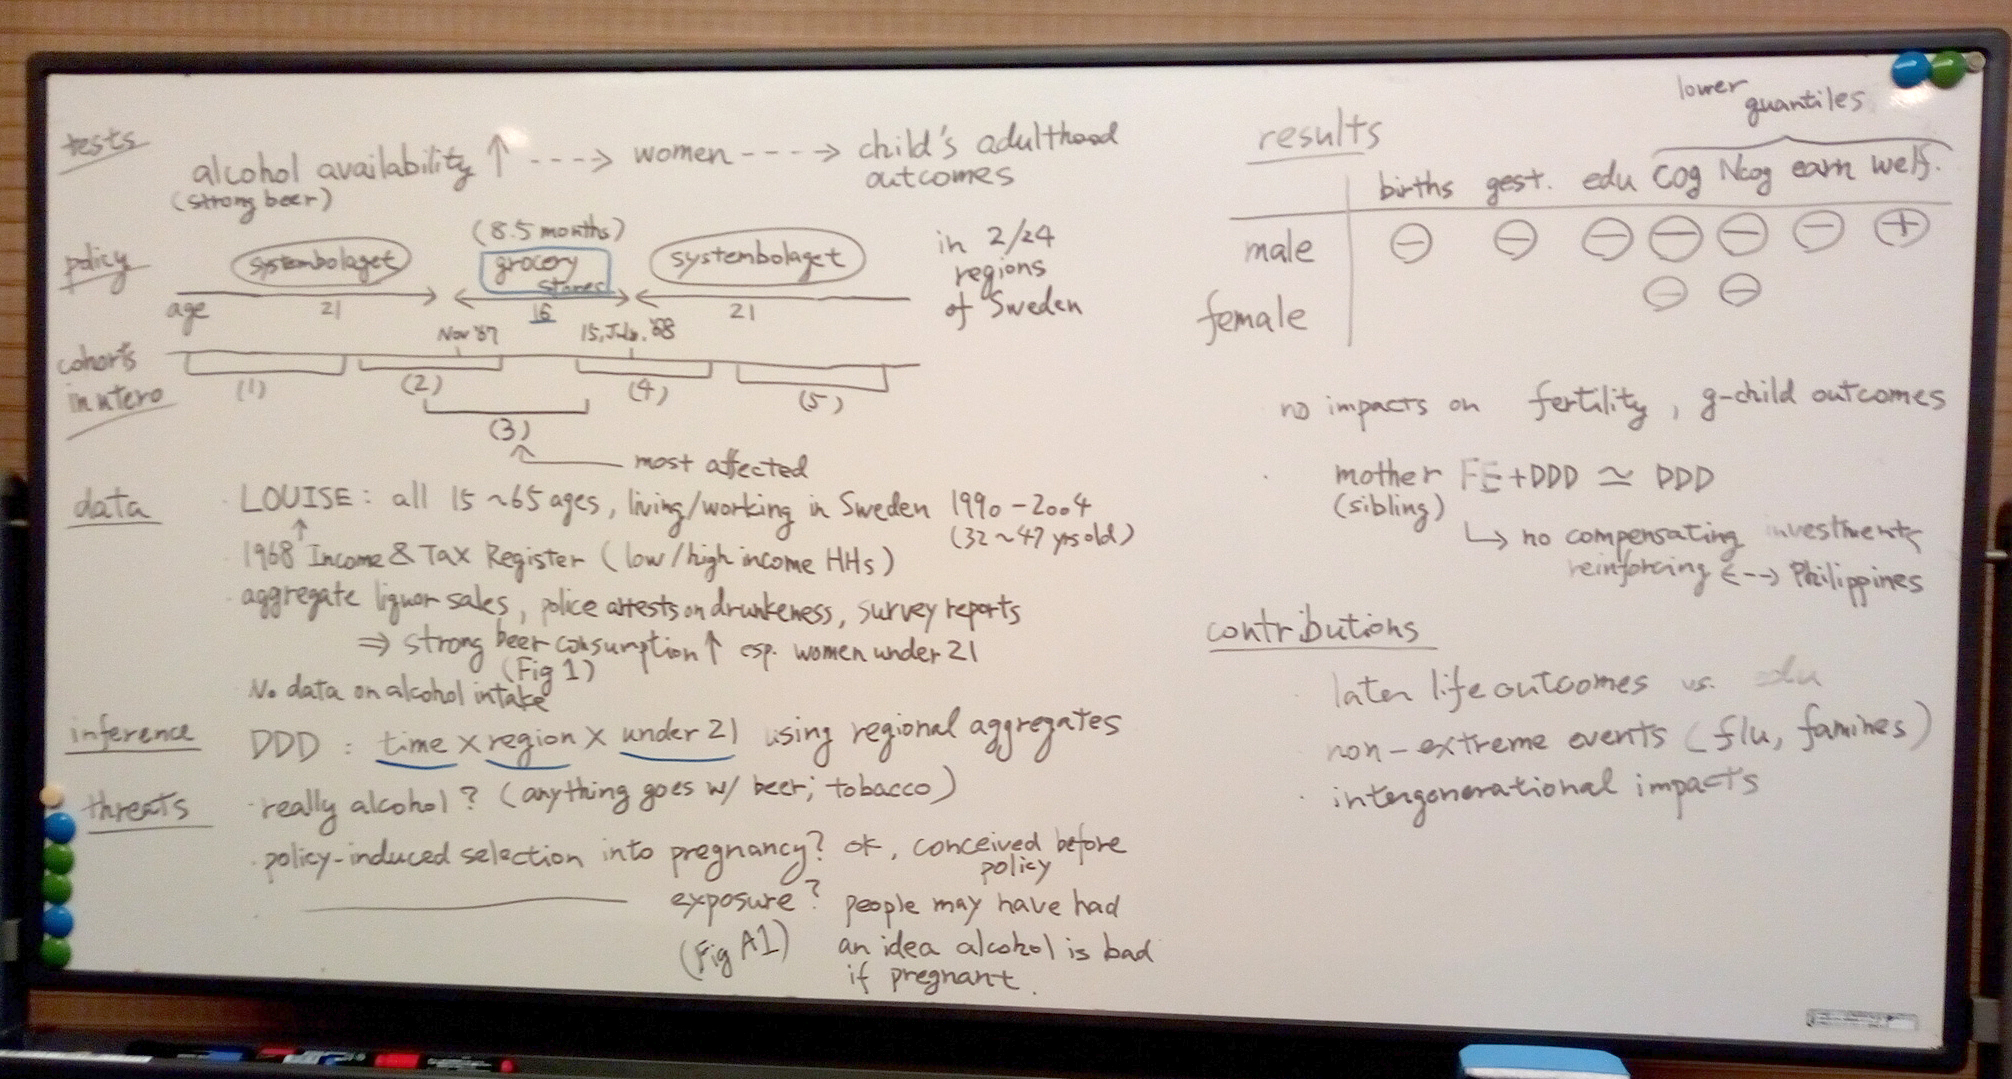 tests
alcohol availability ↑ ----> women ----> child's adulthood
(strong beer)
outcomes
policy
(8.5 months)
systembolaget
grocery
stores
systembolaget
in 2/24
regions
of Sweden
age
21
16
21
Nov '67
15, July. '68
cohorts
in utero
(1)
(2)
(4)
(5)
(3)
most affected
data
· LOUISE: all 15~65 ages, living/working in Sweden 1990-2004
(32~47 yrs old)
1968 Income & Tax Register (low/high income HHs)
· aggregate liquor sales, police arrests on drunkeness, survey reports
⇒ strong beer consumption ↑ esp. women under 21
(Fig 1)
· No data on alcohol intake
inference
DDD : time × region × under 21 using regional aggregates
threats
· really alcohol? (anything goes w/ beer; tobacco)
· policy-induced selection into pregnancy? ok, conceived before
policy
exposure? people may have had
(Fig A1) an idea alcohol is bad
if pregnant.
results
lower
quantiles
births gest. edu cog Ncog earn welf.
male ⊖ ⊖ ⊖ ⊖ ⊖ ⊖ ⊕
⊖ ⊖
female
no impacts on fertility, g-child outcomes
· mother FE+DDD ≃ DDD
(sibling)
↳ no compensating investments
reinforcing <--> Philippines
contributions
· later life outcomes vs. edu
· non-extreme events (flu, famines)
· intergenerational impacts